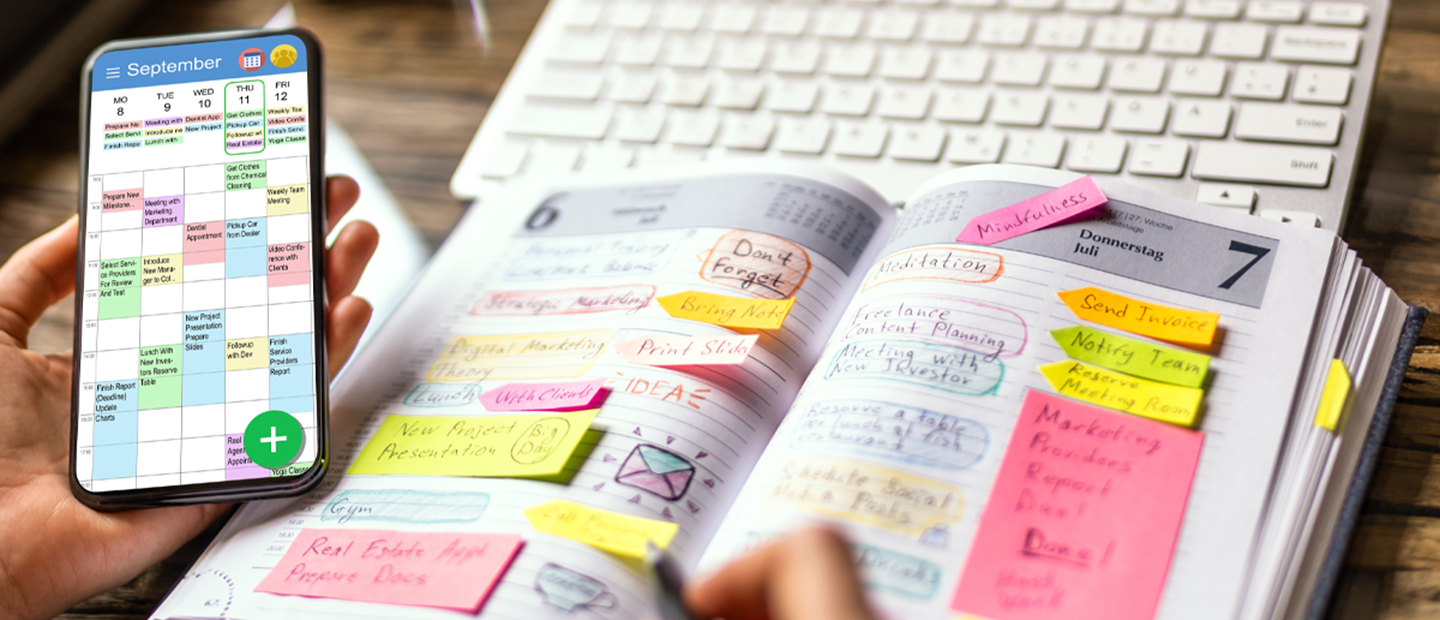 September
MO
8
TUE
9
WED
10
THU
11
FRI
12
Prepare Ne
Select Servi
Finish Repo
Meeting with
Introduce ne
Lunch with
Dentist App
New Project
Get Clothes
Pickup Car
Followup wi
Real Estate
Weekly Tea
Video Confe
Finish Servi
Yoga Classe
Get Clothes
from Chemical
Cleaning
Prepare New
Milestone...
Meeting with
Marketing
Department
Weekly Team
Meeting
Dentist
Appointment
Pickup Car
from Dealer
Video Confe-
rence with
Clients
Select Servi-
ce Providers
For Review
And Test
Introduce
New Mana-
ger to Col...
New Project
Presentation
Prepare
Slides
Lunch With
New Inves-
tors Reserve
Table
Followup
with Dev
Finish
Service
Providers
Report
Finish Report
(Deadline)
Update
Charts
Real
Agen
Appoint
Yoga Classe
+
6
Juli
Don't
Forget
Strategic Marketing
Bring Note
Digital Marketing
Theory
Print Slide
Lunch
With Clients
IDEA
New Project
Presentation
Big
Day
Gym
Real Estate Appt
Prepare Docs
Mindfulness
27. Woche
Donnerstag
Juli
7
Meditation
Send Invoice
Freelance
Content Planning
Notify Team
Meeting with
New Investor
Reserve
Meeting Room
Reserve a table
for lunch at fish
restaurant
Schedule Social
Media Posts
Marketing
Providers
Report
Due!
Done!
Hard
Work
Backspace
Enter
Shift